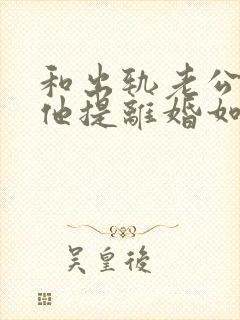 和出轨老公
他提離婚如
吴皇後